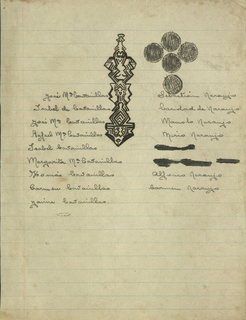 José Mª Cavanillas
Isabel de Cavanillas
José Mª Cavanillas
Rafael Mª Cavanillas
Isabel Cavanillas
Margarita Mª Cavanillas
Tomás Cavanillas
Carmen Cavanillas
Jaime Cavanillas
Sebastián Naranjo
Caridad de Naranjo
Manolo Naranjo
Mario Naranjo
Alfonso Naranjo
Carmen Naranjo